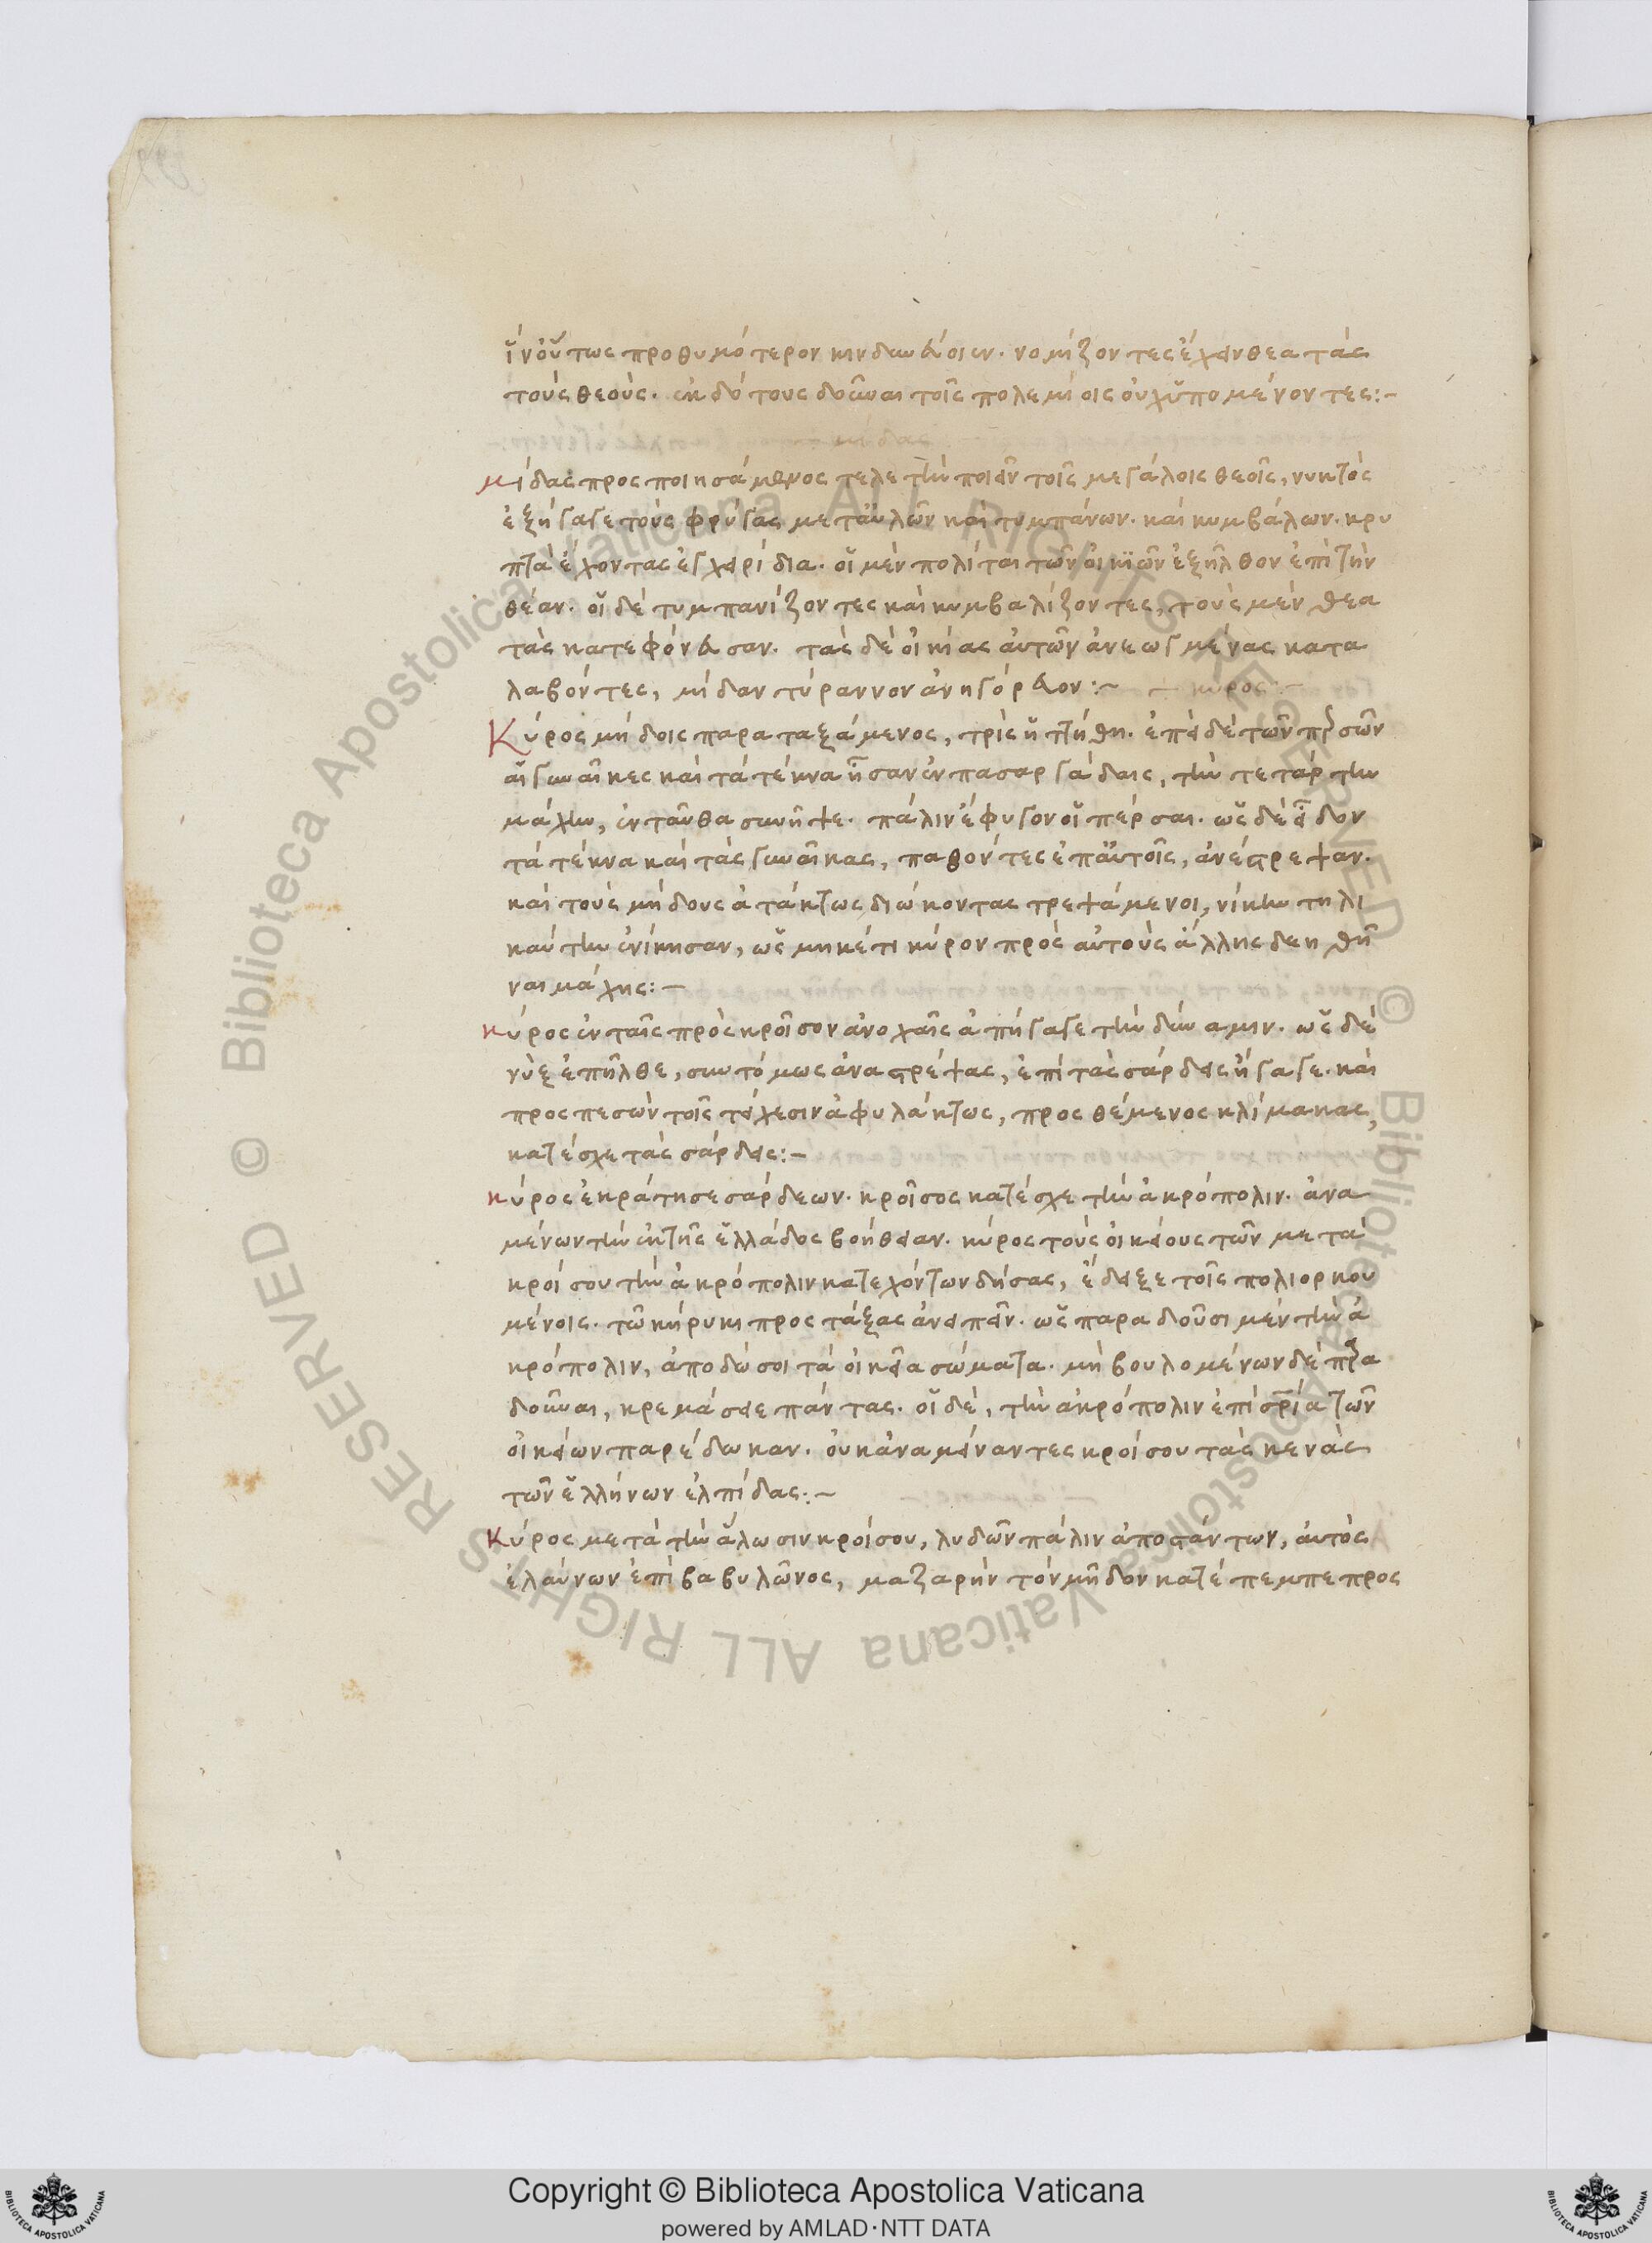 ἵν οὕτως προθυμότερον κινδυνεύοιεν. νομίζοντες ἔχειν θεατὰς
τοὺς θεούς. ἐκδότους δοῦναι τοῖς πολεμίοις οὐχ ὑπομένοντες:-
μίδας προσποιησάμενος τελετὴν ποιεῖν τοῖς μεγάλοις θεοῖς, νυκτὸς
ἐξήγαγε τοὺς φρύγας μετ αὐλῶν καὶ τυμπάνων. καὶ κυμβάλων. κρυ
πτὰ ἔχοντας ἐγχειρίδια. οἱ μὲν πολίται τῶν οἰκιῶν ἐξῆλθον ἐπὶ τὴν
θέαν. οἱ δὲ τυμπανίζοντες καὶ κυμβαλίζοντες, τοὺς μὲν θεα
τὰς κατεφόνευσαν. τὰς δὲ οἰκίας αὐτῶν ἀνεωγμένας κατα
λαβόντες, μίδαν τύραννον ἀνηγόρευον:- - κῦρος:-
Κύρος μήδοις παραταξάμενος, τρὶς ἡττήθη. ἐπεὶ δὲ τῶν περσῶν
αἱ γυναῖκες καὶ τὰ τέκνα ἦσαν ἐν πασαργάδαις, τὴν τετάρτην
μάχην, ἐνταῦθα συνῆψε. πάλιν ἔφυγον οἱ πέρσαι. ὡς δὲ εἶδον
τὰ τέκνα καὶ τὰς γυναῖκας, παθόντες ἐπ αὐτοῖς, ἀνέστρεψαν.
καὶ τοὺς μήδους ἀτάκτως διώκοντας τρεψάμενοι, νίκην τηλι
καύτην ἐνίκησαν, ὡς μηκέτι κύρον πρὸς αὐτοὺς ἄλλης δεηθῆ
ναι μάχης:-
κύρος ἐν ταῖς πρὸς κροῖσον ἀνοχαῖς ἀπήγαγε τὴν δύναμιν. ὡς δὲ
νὺξ ἐπῆλθε, συντόμως ἀναστρέψας, ἐπὶ τὰς σάρδεις ἤγαγε. καὶ
προσπεσὼν τοῖς τείχεσιν ἀφυλάκτως, προσθέμενος κλίμακας,
κατέσχε τὰς σάρδεις:-
κύρος ἐκράτησε σάρδεων. κροῖσος κατέσχε τὴν ἀκρόπολιν. ἀνα
μένων τὴν ἐκ τῆς ἑλλάδος βοήθειαν. κύρος τοὺς οἰκείους τῶν μετὰ
κροίσου τὴν ἀκρόπολιν κατεχόντων δήσας, ἔδειξε τοῖς πολιορκου
μένοις. τῶ κήρυκι προστάξας ἀνειπεῖν. ὡς παραδοῦσι μὲν τὴν ἀ
κρόπολιν, ἀποδώσοι τὰ οἰκεῖα σώματα. μὴ βουλομένων δὲ παρα
δοῦναι, κρεμάσειε πάντας. οἱ δὲ, τὴν ἀκρόπολιν ἐπὶ σωτηρία τῶν
οἰκείων παρέδωκαν. οὐκ ἀναμείναντες κροίσου τὰς κενὰς
τῶν ἑλλήνων ἐλπίδας:-
Κύρος μετὰ τὴν ἅλωσιν κροίσου, λυδῶν πάλιν ἀποστάντων, αὐτὸς
ἐλαύνων ἐπὶ βαβυλῶνος, μαζαρὴν τὸν μῆδον κατέπεμπε προς
© Biblioteca Apostolica Vaticana ALL RIGHTS RESERVED © Biblioteca Apostolica Vaticana ALL RIGHTS RESERVED
Copyright © Biblioteca Apostolica Vaticana
powered by AMLAD·NTT DATA
BIBLIOTECA APOSTOLICA VATICANA
BIBLIOTECA APOSTOLICA VATICANA